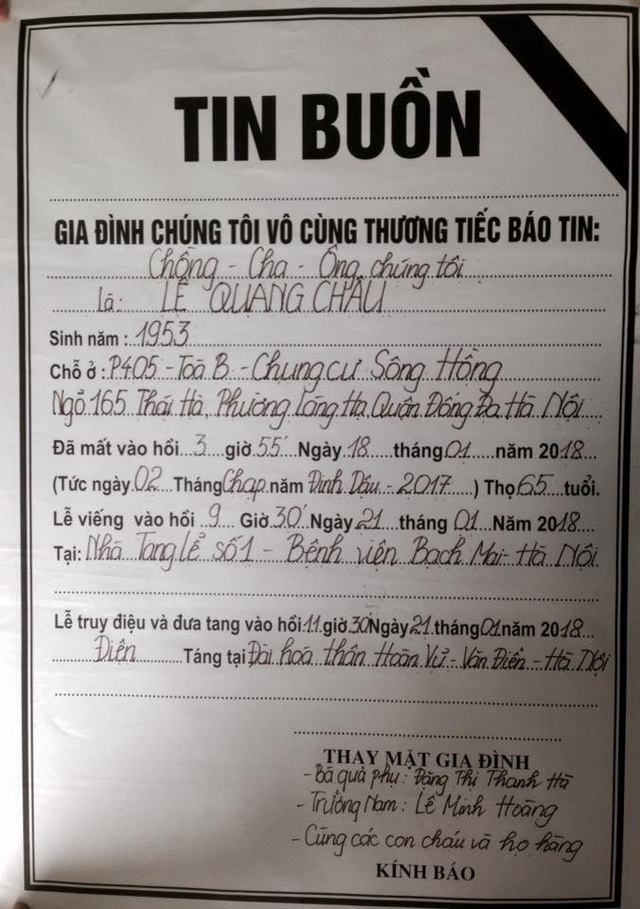 TIN BUỒN
GIA ĐÌNH CHÚNG TÔI VÔ CÙNG THƯƠNG TIẾC BÁO TIN:
Chồng - Cha - Ông chúng tôi
Là: LÊ QUANG CHÂU
Sinh năm : 1953
Chỗ ở : P405 - Toà B - Chung cư Sông Hồng
Ngõ 165 Thái Hà, Phường Láng Hạ, Quận Đống Đa Hà Nội
Đã mất vào hồi 3 giờ 55' Ngày 18 tháng 01 năm 2018
(Tức ngày 02 Tháng Chạp năm Đinh Dậu - 2017 ) Thọ 65 tuổi.
Lễ viếng vào hồi 9 Giờ 30' Ngày 21 tháng 01 Năm 2018
Tại: Nhà Tang lễ số 1 - Bệnh viện Bạch Mai - Hà Nội
Lễ truy điệu và đưa tang vào hồi 11 giờ 30' Ngày 21 tháng 01 năm 2018
Điện Táng tại Đài hoá thân Hoàn Vũ - Văn Điển - Hà Nội
THAY MẶT GIA ĐÌNH
- Bà quả phụ : Đặng Thị Thanh Hà
- Trưởng Nam : Lê Minh Hoàng
- Cùng các con cháu và họ hàng
KÍNH BÁO